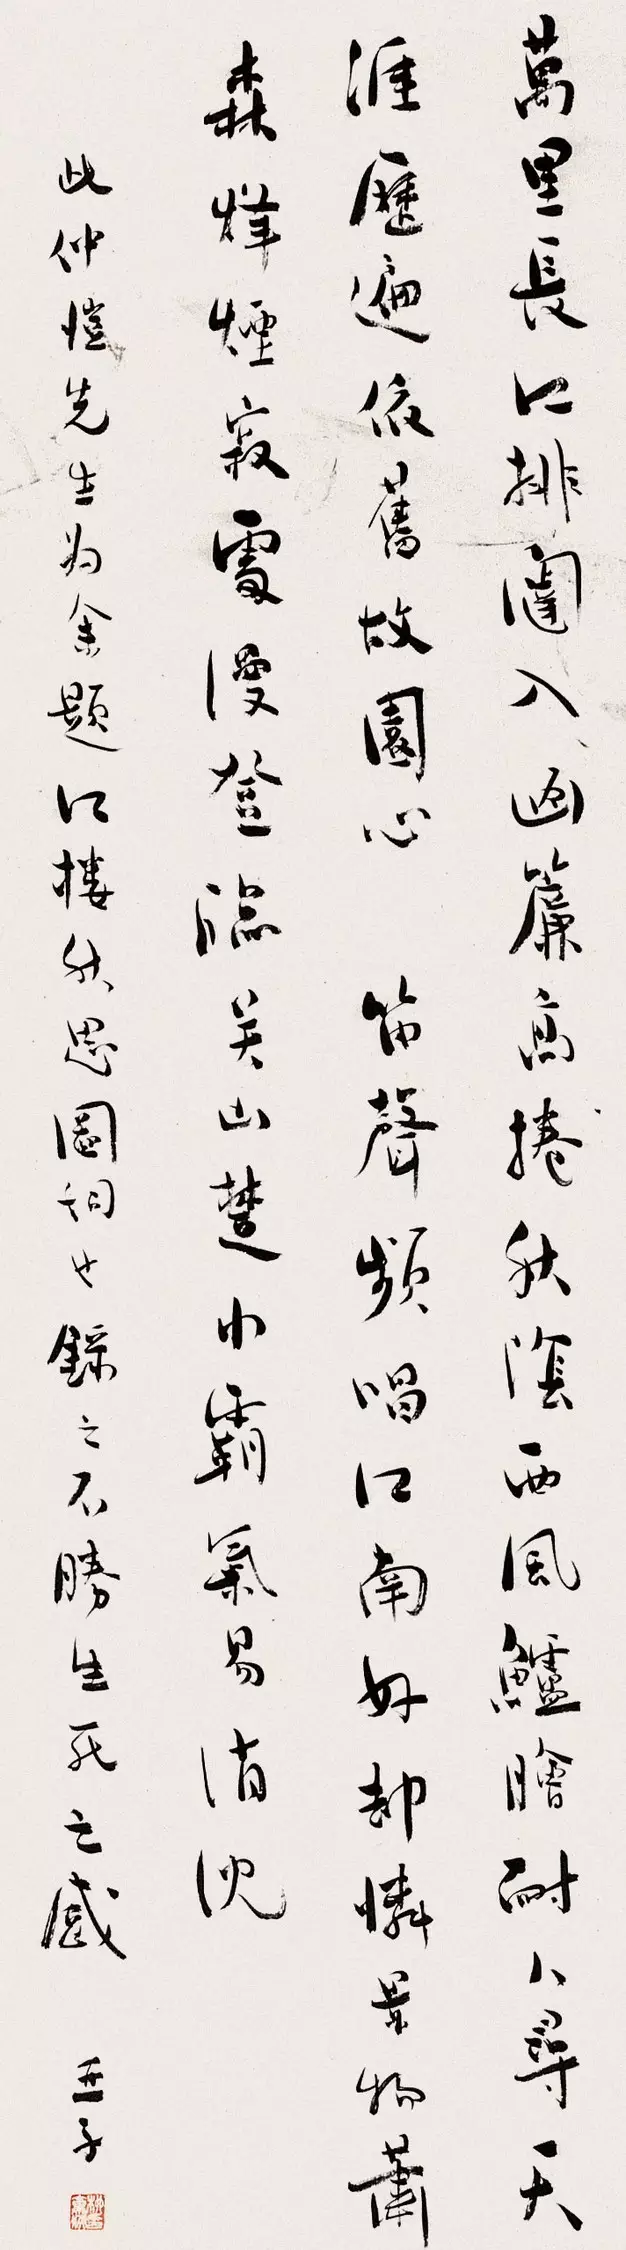 萬里長江排闥入画簾高捲秋陰西風鱸膾耐人尋天
涯歷遍依舊故園心　笛聲頻唱江南好却憐景物蕭
森烽煙寂處漫登臨关山楚水霸氣易消沈
此仲愷先生为余題江樓秋思圖詞也錄之不勝生死之感
亞子